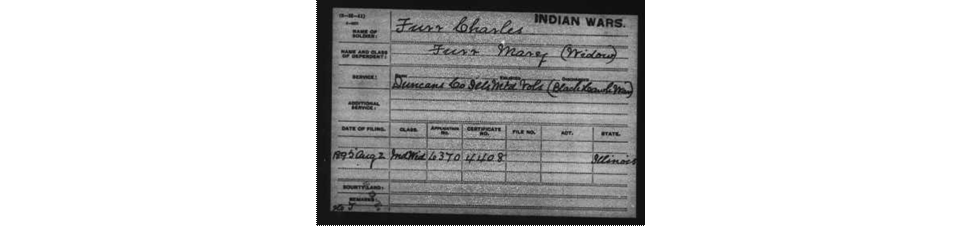 INDIAN WARS.
NAME OF SOLDIER: Furr Charles
NAME AND CLASS OF DEPENDENT: Furr Mary (Widow)
SERVICE: Duncans Co Ills Mtd Vols (Black Hawk War)
ADDITIONAL SERVICE:
DATE OF FILING. CLASS. APPLICATION No. CERTIFICATE NO. FILE NO. ACT. STATE.
1895 Aug 2 Ind Wid 6370 4408 Illinois
BOUNTY LAND:
REMARKS: